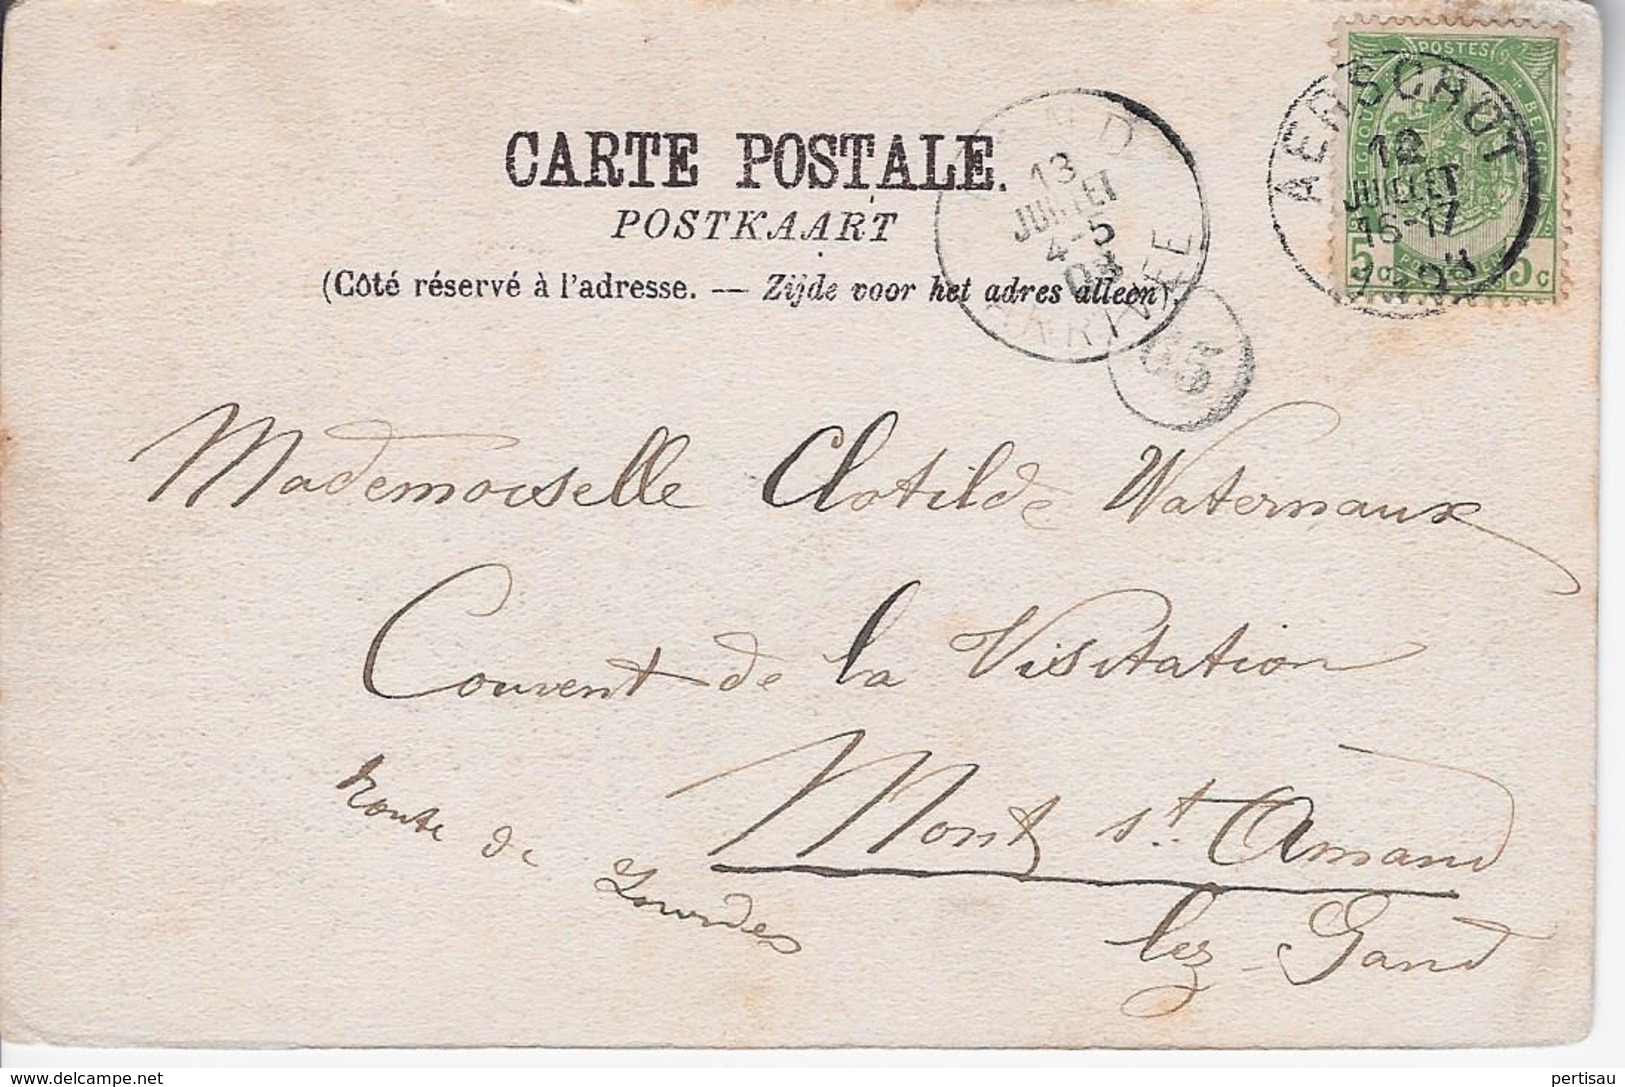 POSTES
AERSCHOT
12
JUILLET
16-17
5c 5c
GAND
13
JUILLET
4-5
03
ARRIVEE
CARTE POSTALE.
POSTKAART
(Côté réservé à l'adresse. — Zijde voor het adres alleen)
Mademoiselle Clotilde Waternaux
Couvent de la Visitation
Mont st. Amand
Route de Lourdes
lez-Gand
delcampe.net
pertisau